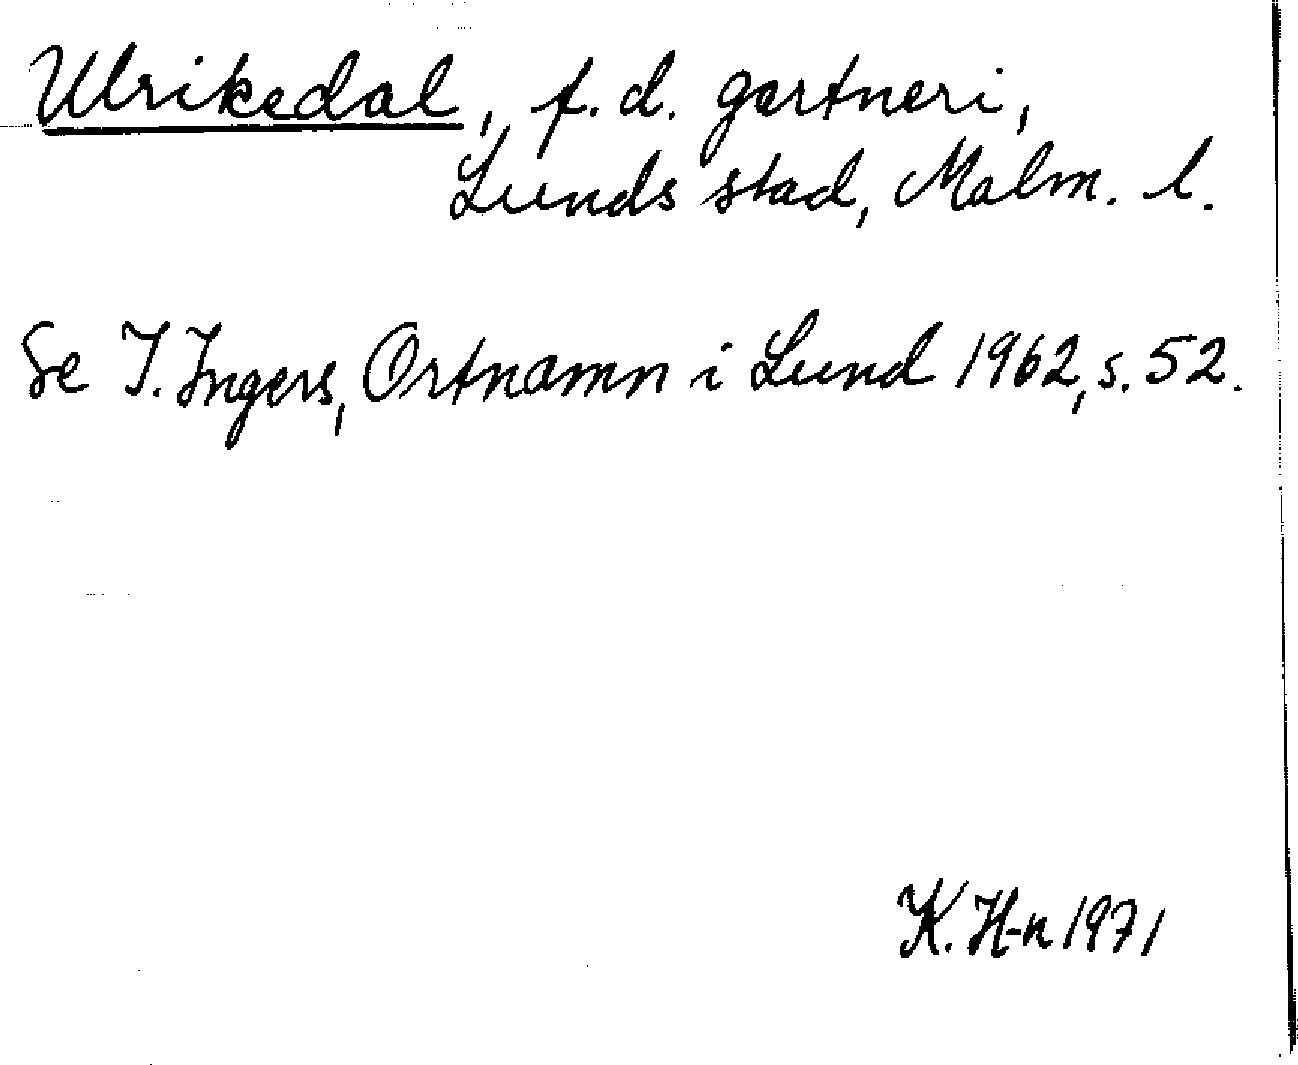 Ulrikedal, f.d. gartneri,
Lunds stad, Malm. l.
Se I. Ingers, Ortnamn i Lund 1962, s. 52.
K. H-n 1971